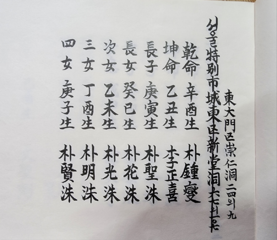 東大門區崇仁洞二四의九
서울特別市城東區新堂洞
乾命 辛酉生 朴鍾燮
坤命 乙丑生 李正喜
長子 庚寅生 朴聖洙
長女 癸巳生 朴花洙
次女 乙未生 朴光洙
三女 丁酉生 朴明洙
四女 庚子生 朴賢洙